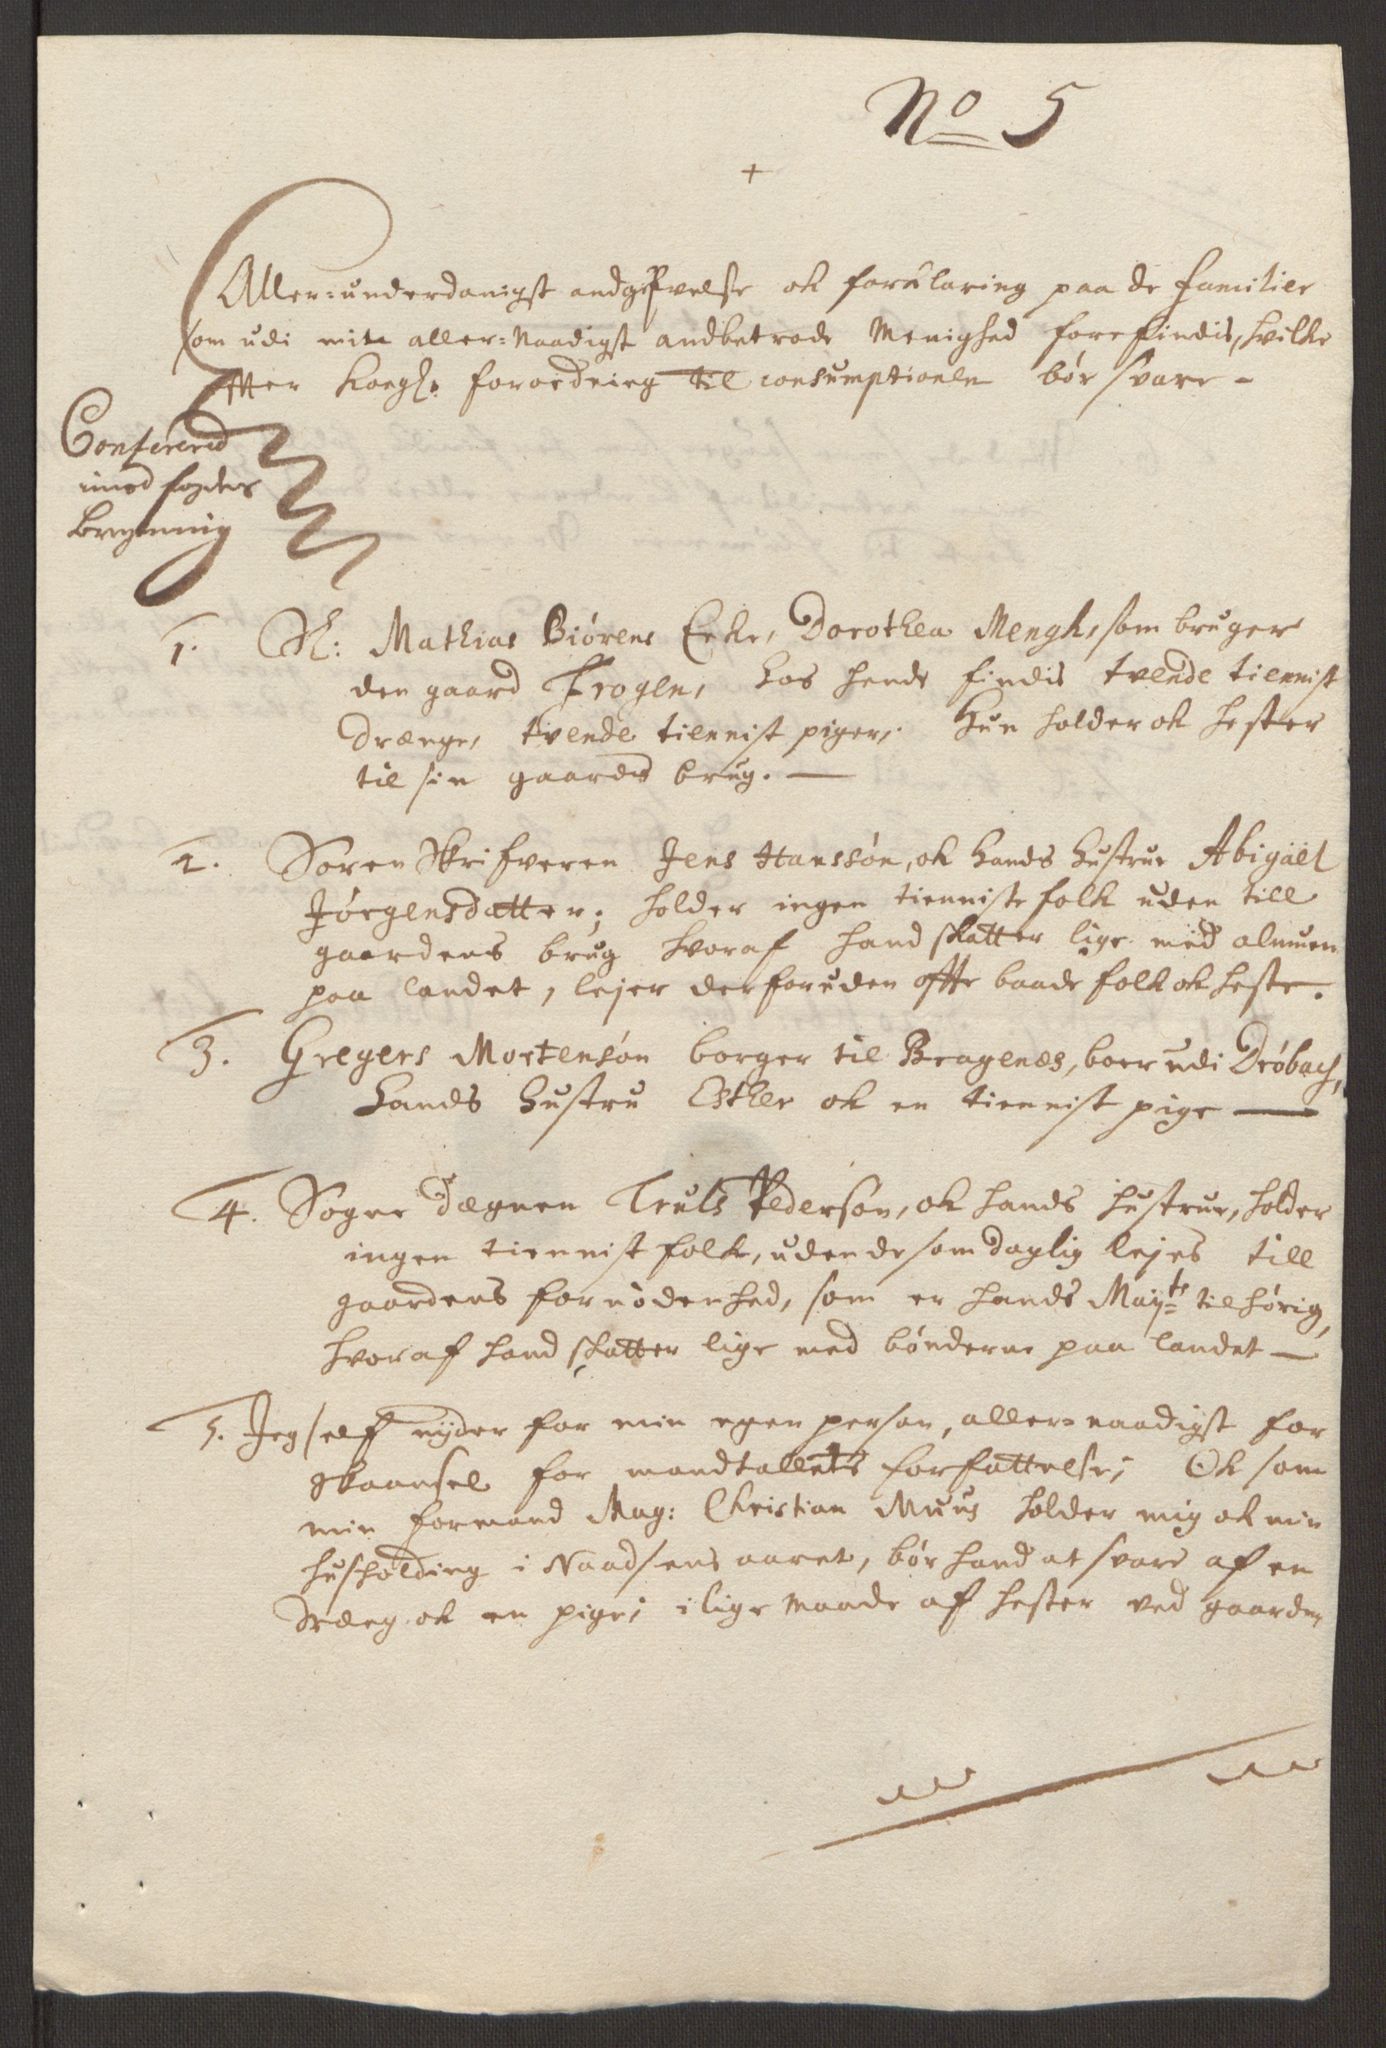 No 5
+
Aller-underdanigst andgifvelse ok forklaring paa de familier
som udi mit aller-Naadigst andbetrode Menighed forefindis, hvilke
effter Kongl. forordning til consumptionen bør svare -
Confererid
imod fogdens
Beregning
1. Sl: Mathias Biørens Enke, Dorothea Mengh, som bruger
den gaard Frogen, hos hende findis tvende tiennist
drænge, tvende tiennist piger, Hun holder ok hester
til sin gaards brug. —
2. Soren Skrifveren Jens Hanssøn, ok hands hustrue Abigael
Jørgensdatter; holder ingen tienniste folk uden till
gaardens brug hvoraf hand skatter lige med almuen
paa landet, lejer derforuden offte baade folk ok heste.
3. Gregers Mortensøn borger til Bragenæs, boer udi Drøbach,
hands hustru Esther ok en tiennist pige —
4. Sogne Dægnen Truls Pedersøn, ok hands hustrue, holder
ingen tiennist folk, uden de som daglig lejes till
gaardens fornødenhed, som er hands Mayts tilhørig,
hvoraf hand skatter lige med bønderne paa landet —
5. Jeg self nyder for min egen person, aller-naadigst for
skaansel for mandtallets forfattelse; Ok som
min formand Mag: Christian Muus holder mig ok min
husholding i Naadsens aaret, bør hand at svare af en
dræng ok en pige; i lige maade af hester ved gaarden